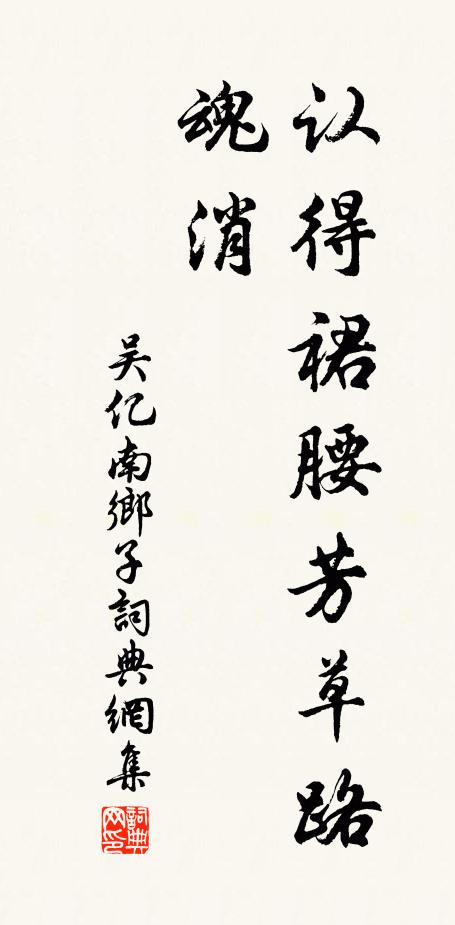 认得裙腰芳草路
魂消
吴亿南鄉子詞典網集
詞典网印